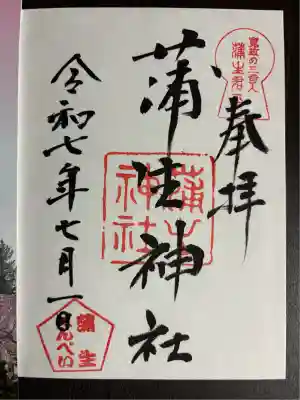 寛政の三奇人
蒲生君平
奉拝
蒲生神社
蒲生
神社
令和七年七月一日
蒲生
くんぺい